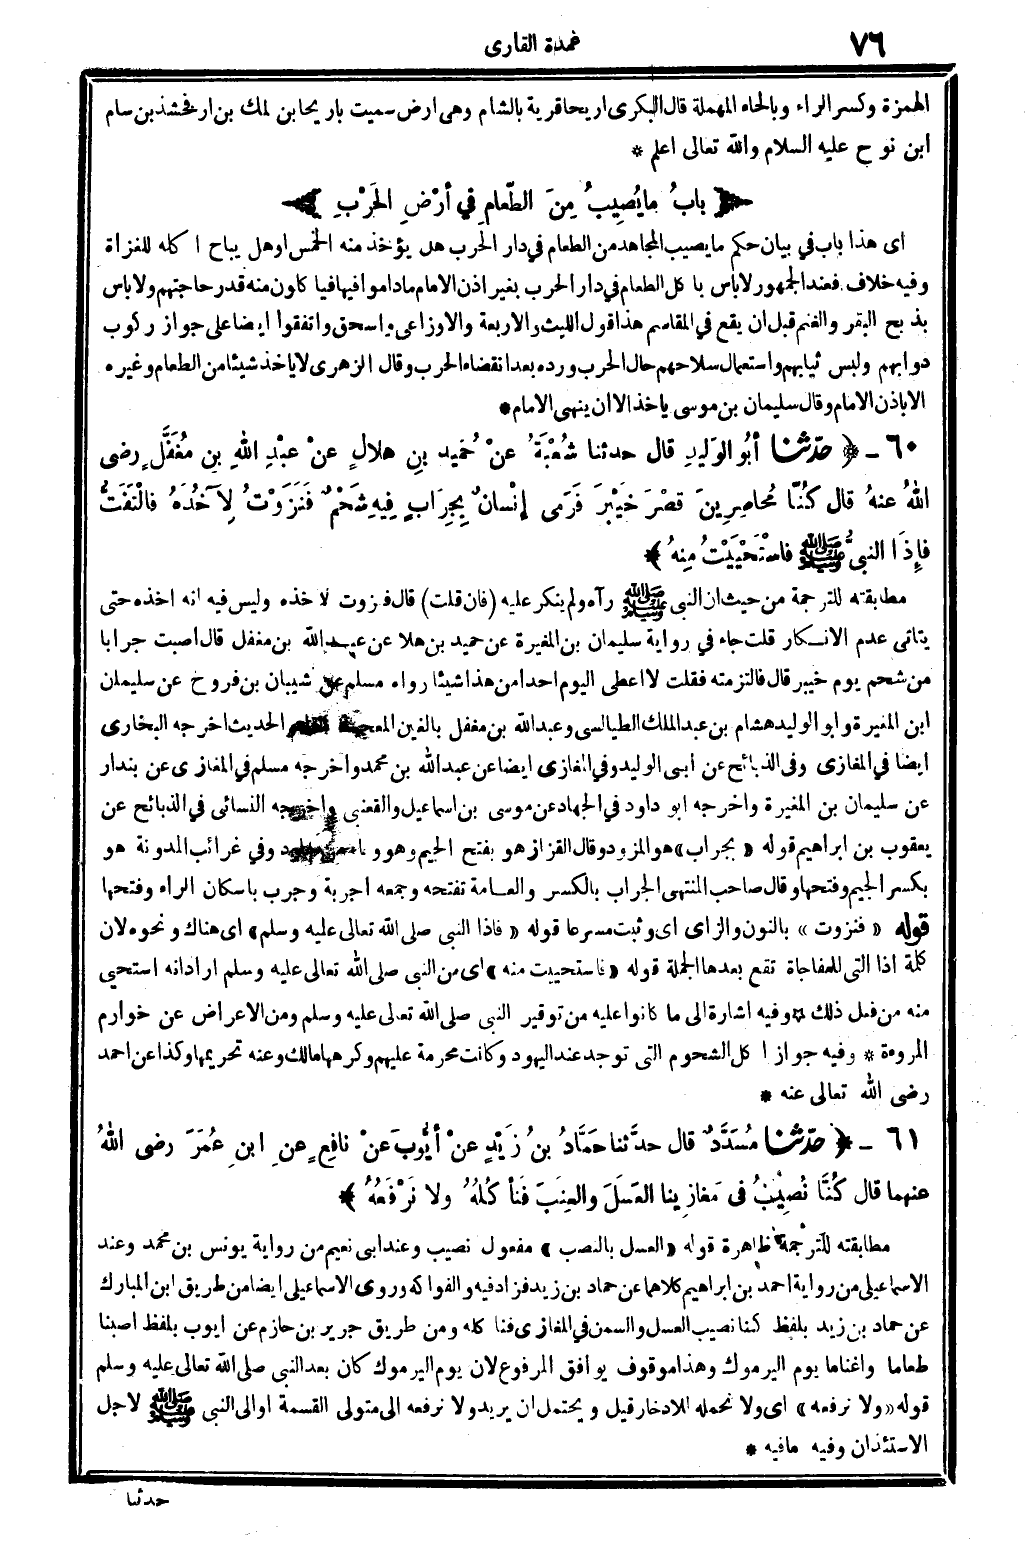 ٧٦
عمدة القارى
الهمزة وكسر الراء وبالحاء المهملة قال البكرى اريحا قرية بالشام وهى ارض سميت باريحا بن لمك بن ارفخشذ بن سام
ابن نوح عليه السلام والله تعالى اعلم *
بابُ ما يُصِيبُ مِنَ الطَّعامِ في أرْضِ الحَرْبِ
اى هذا باب في بيان حكم ما يصيب المجاهد من الطعام في دار الحرب هل يؤخذ منه الخمس او هل يباح اكله للغزاة
وفيه خلاف فعند الجمهور لاباس باكل الطعام في دار الحرب بغير اذن الامام ماداموا فيها فيا كلون منه قدر حاجتهم ولاباس
بذبح البقر والغنم قبل ان يقع في المقاسم هذا قول الليث والاربعة والاوزاعى واسحق واتفقوا ايضا على جواز ركوب
دوابهم ولبس ثيابهم واستعمال سلاحهم حال الحرب ورده بعد انقضاء الحرب وقال الزهرى لا ياخذ شيئا من الطعام وغيره
الا باذن الامام وقال سليمان بن موسى ياخذ الا ان ينهى الامام *
٦٠ - ﴿ حدّثنا أبُو الوَلِيدِ قال حدثنا شُعْبَةُ عنْ حُمَيد بنِ هلالٍ عنْ عبْدِ اللهِ بنِ مُغَفَّلٍ رضى
اللهُ عنهُ قال كُنَّا مُحاصِرِينَ قصْرَ خَيْبَرَ فَرَمَى إنْسانٌ بِجِرَابٍ فِيهِ شَحْمٌ فَنَزَوْتُ لِآخُذَهُ فالْتَفَتُّ
فإِذَا النبيُّ ﷺ فاسْتَحْيَيْتُ مِنهُ ﴾
مطابقته للترجمة من حيث ان النبى ﷺ رآه ولم ينكر عليه (فان قلت) قال فنزوت لآخذه وليس فيه انه اخذه حتى
يتاتى عدم الانكار قلت جاء في رواية سليمان بن المغيرة عن حميد بن هلا عن عبد الله بن مغفل قال اصبت جرابا
من شحم يوم خيبر قال فالتزمته فقلت لا اعطى اليوم احدا من هذا شيئا رواه مسلم عن شيبان بن فروخ عن سليمان
ابن المغيرة وابو الوليد هشام بن عبد الملك الطيالسى وعبد الله بن مغفل بالغين المعجمة الحديث اخرجه البخارى
ايضا في المغازى وفى الذبائح عن أبى الوليد وفي المغازى ايضا عن عبد الله بن محمد واخرجه مسلم في المغازى عن بندار
عن سليمان بن المغيرة واخرجه ابو داود في الجهاد عن موسى بن اسماعيل والقعنبى واخرجه النسائى في الذبائح عن
يعقوب بن ابراهيم قوله «بجراب» هو المزود وقال القزاز هو بفتح الجيم وهو وعاء من جلود وفي غرائب المدونة هو
بكسر الجيم وفتحها وقال صاحب المنتهى الجراب بالكسر والعامة تفتحه وجمعه اجربة وجرب باسكان الراء وفتحها
قوله «فنزوت» بالنون والزاى اى وثبت مسرعا قوله «فاذا النبى صلى الله تعالى عليه وسلم» اى هناك ونحوه لان
كلمة اذا التى للمفاجاة تقع بعدها الجملة قوله «فاستحييت منه» اى من النبى صلى الله تعالى عليه وسلم اراد انه استحيى
منه من فعل ذلك * وفيه اشارة الى ما كانوا عليه من توقير النبى صلى الله تعالى عليه وسلم ومن الاعراض عن خوارم
المروءة * وفيه جواز اكل الشحوم التى توجد عند اليهود وكانت محرمة عليهم وكرهها مالك وعنه تحريمها وكذا عن احمد
رضى الله تعالى عنه *
٦١ - ﴿ حدّثنا مُسَدَّدٌ قال حدَّثنا حَمَّادُ بنُ زَيْدٍ عنْ أيُّوبَ عنْ نافِعٍ عنِ ابنِ عُمَرَ رضى اللهُ
عنهما قال كُنَّا نُصِيبُ فى مَغازِينا العَسَلَ والعِنَبَ فَنأْكُلُهُ ولا نَرْفَعُهُ ﴾
مطابقته للترجمة ظاهرة قوله «العسل بالنصب» مفعول نصيب وعند ابى نعيم من رواية يونس بن محمد وعند
الاسماعيلى من رواية احمد بن ابراهيم كلاهما عن حماد بن زيد فزاد فيه والفواكه وروى الاسماعيلى ايضا من طريق ابن المبارك
عن حماد بن زيد بلفظ كنا نصيب العسل والسمن في المغازى فنا كله ومن طريق جرير بن حازم عن ايوب بلفظ اصبنا
طعاما واغناما يوم اليرموك وهذا موقوف يوافق المرفوع لان يوم اليرموك كان بعد النبى صلى الله تعالى عليه وسلم
قوله «ولا نرفعه» اى ولا نحمله للادخار قيل ويحتمل ان يريد ولا نرفعه الى متولى القسمة او الى النبى ﷺ لاجل
الاستئذان وفيه مافيه *
حدثنا